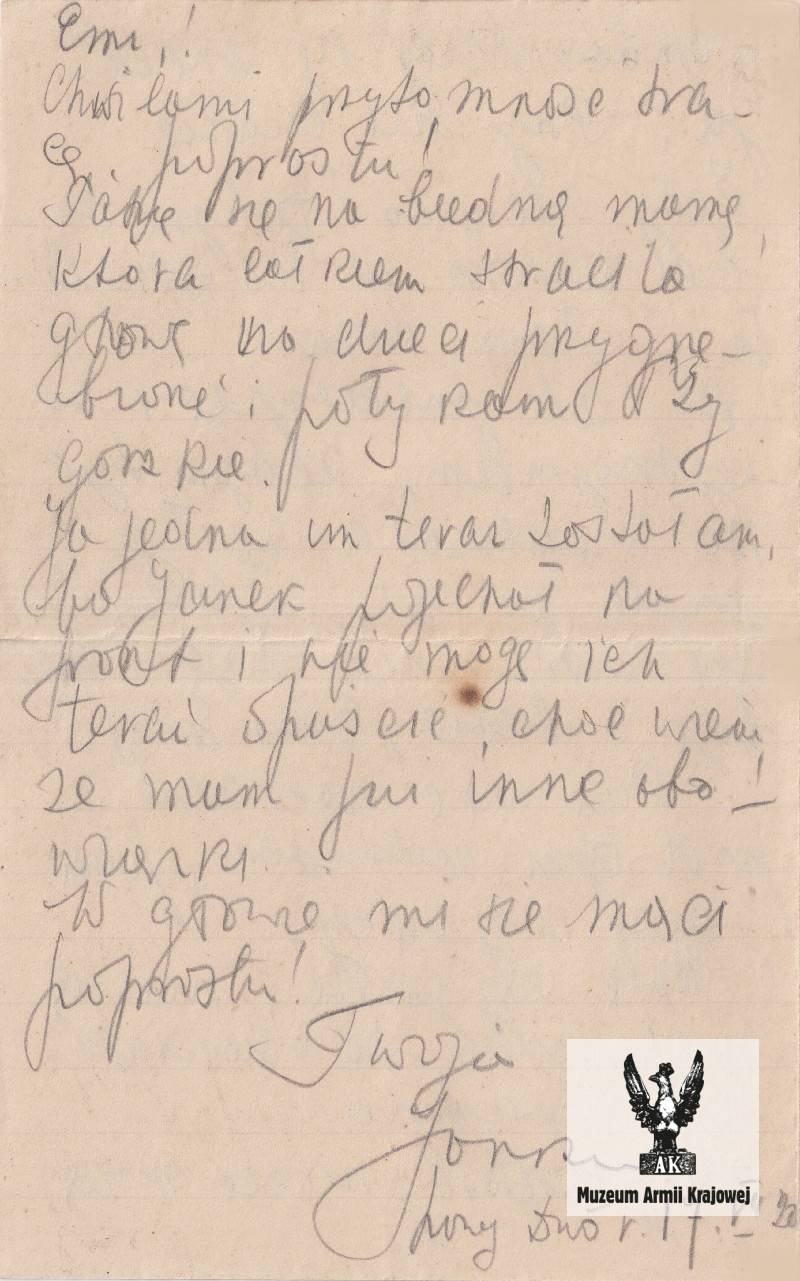 Emi,!
Chwilami przytomność tra-
cę, poprostu!
Patrzę się na biedną mamę,
która całkiem straciła
głowę na dzieci przygnę-
bione i połykam łzy
gorzkie.
Ja jedna im teraz zostałam,
bo Janek pojechał na
front i nie mogę ich
teraz opuścić, choć wiem
że mam już inne obo-!
wiązki.
W głowie mi się mąci
poprostu!
Twoja
Nowy Dwór. 17.
AK
Muzeum Armii Krajowej